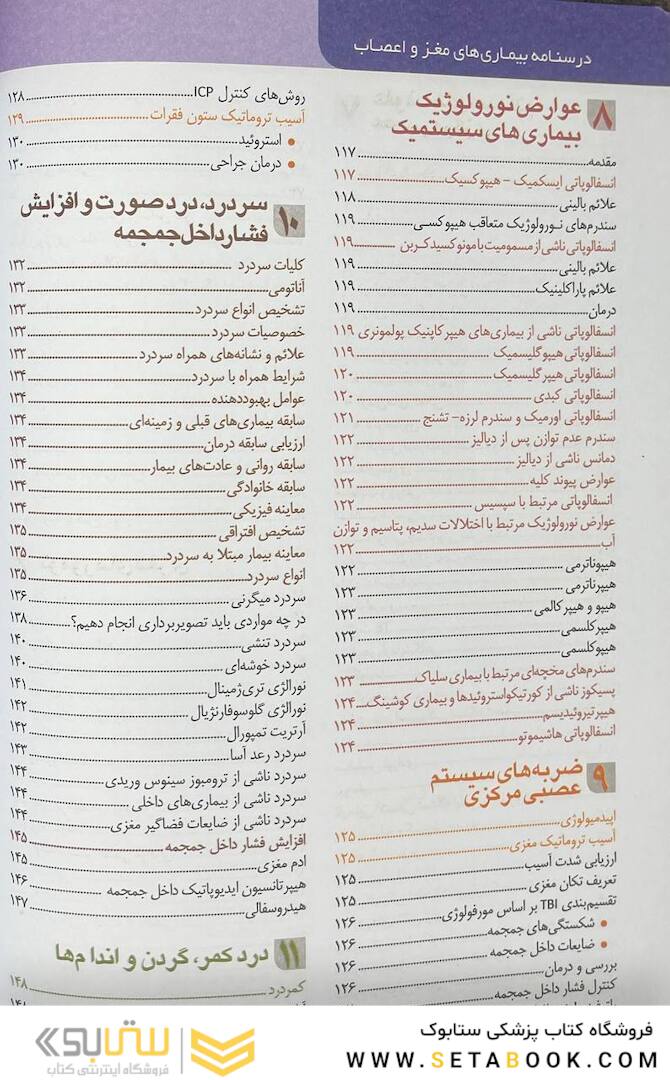 درسنامه بیماری‌های مغز و اعصاب
۸ عوارض نورولوژیک
بیماری‌های سیستمیک
مقدمه ۱۱۷
انسفالوپاتی ایسکمیک - هیپوکسیک ۱۱۷
علائم بالینی ۱۱۸
سندرم‌های نورولوژیک متعاقب هیپوکسی ۱۱۹
انسفالوپاتی ناشی از مسمومیت با مونوکسیدکربن ۱۱۹
علائم بالینی ۱۱۹
علائم پاراکلینیک ۱۱۹
درمان ۱۱۹
انسفالوپاتی ناشی از بیماری‌های هیپرکاپنیک پولمونری ۱۱۹
انسفالوپاتی هیپوگلیسمیک ۱۱۹
انسفالوپاتی هیپرگلیسمیک ۱۲۰
انسفالوپاتی کبدی ۱۲۰
انسفالوپاتی اورمیک و سندرم لرزه- تشنج ۱۲۱
سندرم عدم توازن پس از دیالیز ۱۲۲
دمانس ناشی از دیالیز ۱۲۲
عوارض پیوند کلیه ۱۲۲
انسفالوپاتی مرتبط با سپسیس ۱۲۲
عوارض نورولوژیک مرتبط با اختلالات سدیم، پتاسیم و توازن
آب ۱۲۲
هیپوناترمی ۱۲۲
هیپرناترمی ۱۲۳
هیپو و هیپرکالمی ۱۲۳
هیپرکلسمی ۱۲۳
هیپوکلسمی ۱۲۳
سندرم‌های مخچه‌ای مرتبط با بیماری سلیاک ۱۲۳
پسیکوز ناشی از کورتیکواستروئیدها و بیماری کوشینگ ۱۲۴
هیپرتیروئیدیسم ۱۲۴
انسفالوپاتی هاشیموتو ۱۲۴
۹ ضربه‌های سیستم
عصبی مرکزی
اپیدمیولوژی ۱۲۵
آسیب تروماتیک مغزی ۱۲۵
ارزیابی شدت آسیب ۱۲۵
تعریف تکان مغزی ۱۲۵
تقسیم‌بندی TBI بر اساس مورفولوژی ۱۲۶
• شکستگی‌های جمجمه ۱۲۶
• ضایعات داخل جمجمه ۱۲۶
بررسی و درمان ۱۲۶
کنترل فشار داخل جمجمه ۱۲۶
روش‌های کنترل ICP ۱۲۸
آسیب تروماتیک ستون فقرات ۱۲۹
• استروئید ۱۳۰
• درمان جراحی ۱۳۰
۱۰ سردرد، درد صورت و افزایش
فشار داخل جمجمه
کلیات سردرد ۱۳۲
آناتومی ۱۳۲
تشخیص انواع سردرد ۱۳۳
خصوصیات سردرد ۱۳۳
علائم و نشانه‌های همراه سردرد ۱۳۳
شرایط همراه با سردرد ۱۳۴
عوامل بهبوددهنده ۱۳۴
سابقه بیماری‌های قبلی و زمینه‌ای ۱۳۴
ارزیابی سابقه درمان ۱۳۴
سابقه روانی و عادت‌های بیمار ۱۳۴
سابقه خانوادگی ۱۳۴
معاینه فیزیکی ۱۳۴
تشخیص افتراقی ۱۳۵
معاینه بیمار مبتلا به سردرد ۱۳۵
انواع سردرد ۱۳۵
سردرد میگرنی ۱۳۶
در چه مواردی باید تصویربرداری انجام دهیم؟ ۱۳۸
سردرد تنشی ۱۴۰
سردرد خوشه‌ای ۱۴۰
نورالژی تری‌ژمینال ۱۴۱
نورالژی گلوسوفارنژیال ۱۴۲
آرتریت تمپورال ۱۴۲
سردرد رعد آسا ۱۴۳
سردرد ناشی از ترومبوز سینوس وریدی ۱۴۴
سردرد ناشی از بیماری‌های داخلی ۱۴۴
سردرد ناشی از ضایعات فضاگیر مغزی ۱۴۴
افزایش فشار داخل جمجمه ۱۴۵
ادم مغزی ۱۴۵
هیپرتانسیون ایدیوپاتیک داخل جمجمه ۱۴۶
هیدروسفالی ۱۴۷
۱۱ درد کمر، گردن و اندام‌ها
کمردرد ۱۴۸
فروشگاه کتاب پزشکی ستابوک
WWW.SETABOOK.COM
ستابوک
فروشگاه اینترنتی کتاب